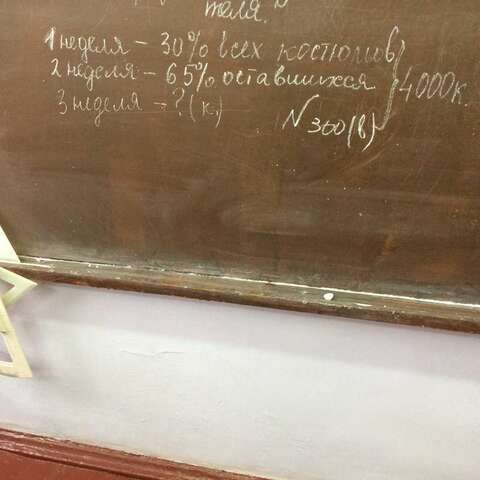 теля.
1 неделя - 30% всех костюмов
2 неделя - 65% оставшихся
4000 к.
3 неделя - ? (к.)
N 360 (В)